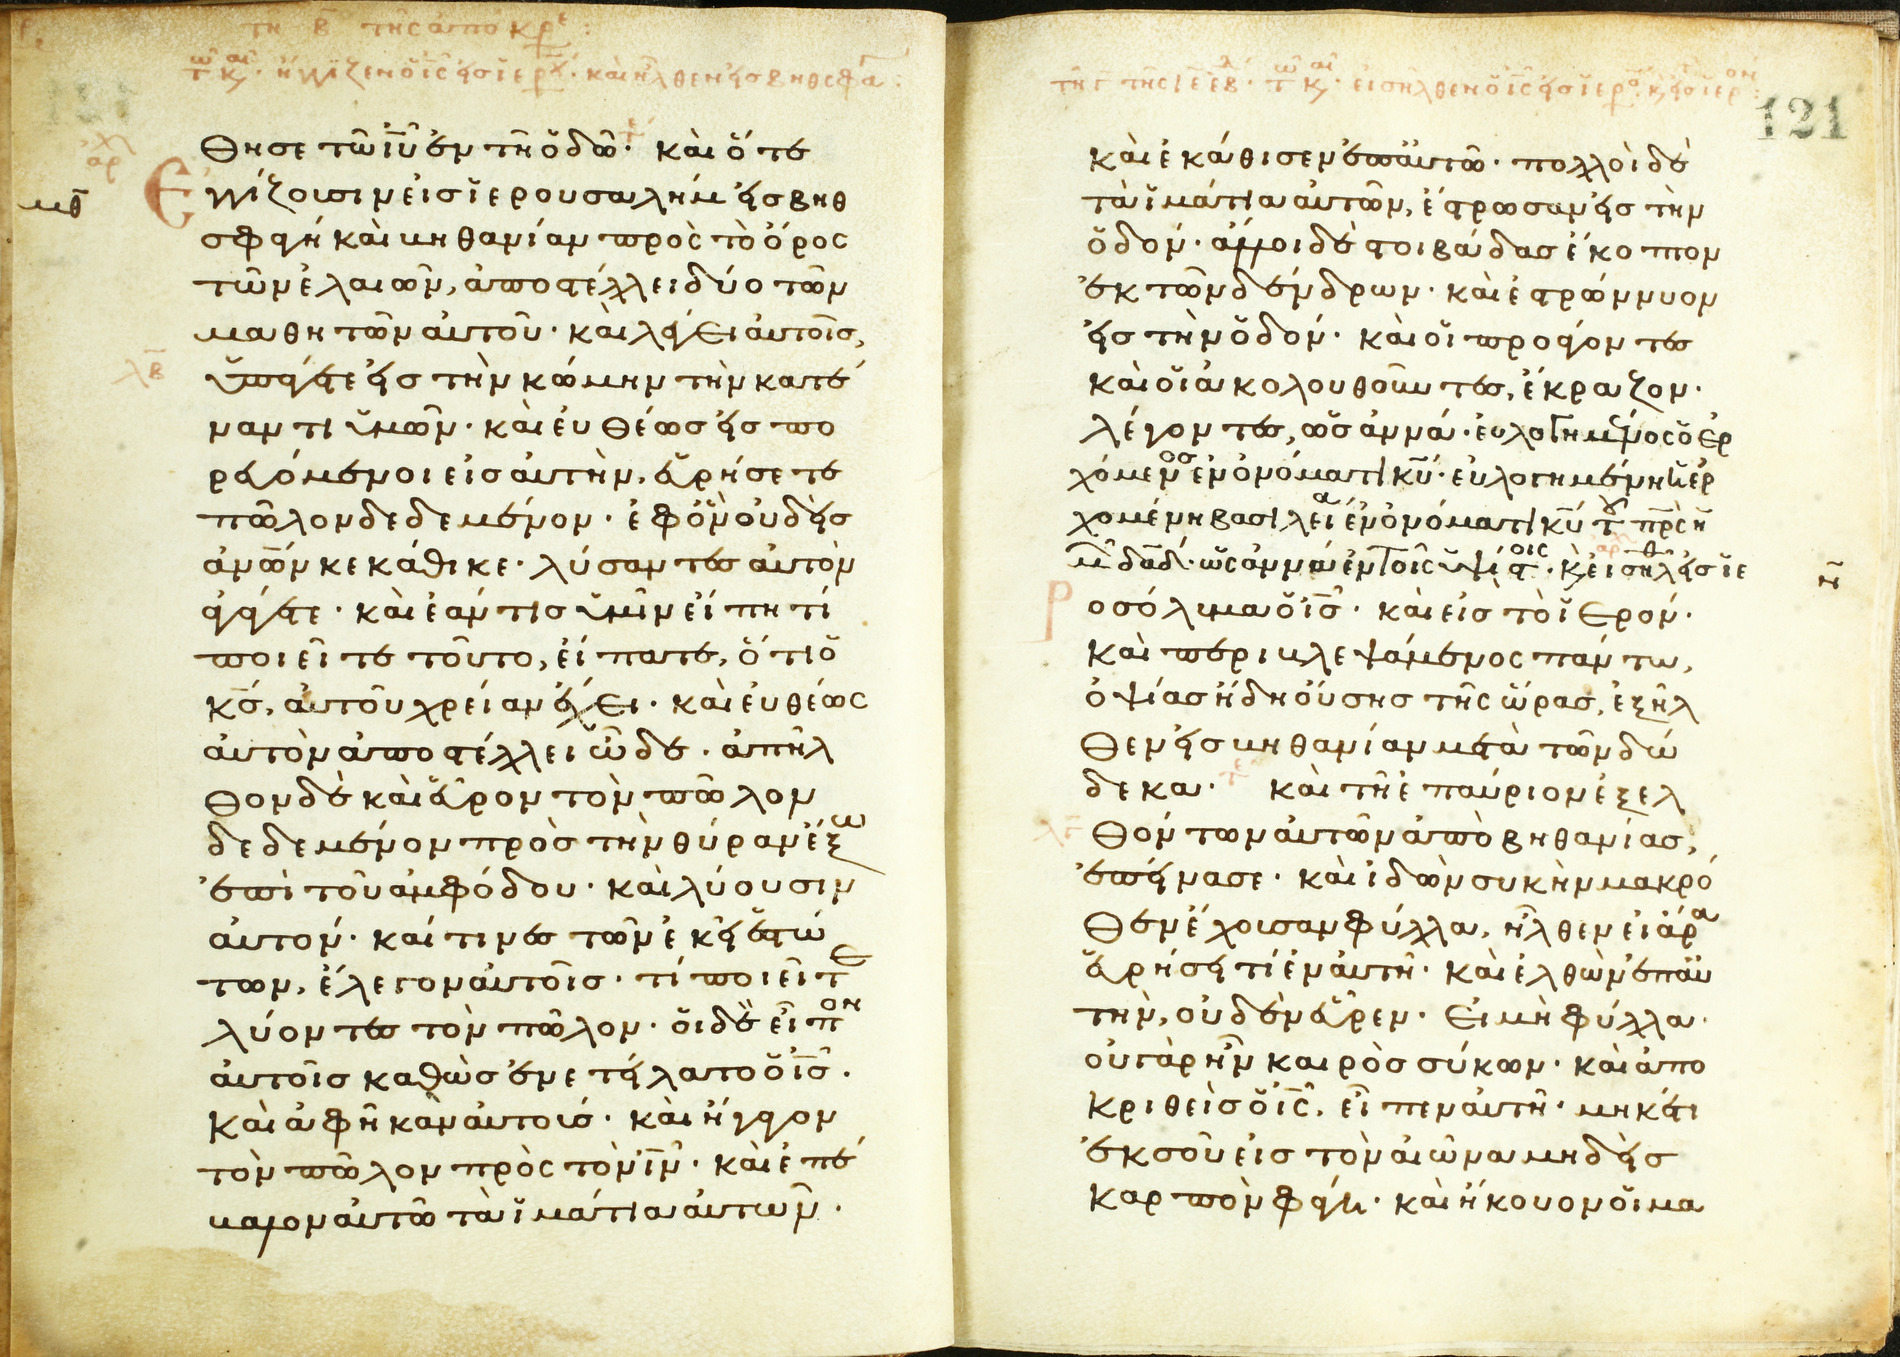 τῇ β̄ τῆς ἀποκρε :
τῶ καιῶ· ἤγγιζεν ὁ ις̄ εἰς ιερ· καὶ ἦλθεν εἰς βηθσφα :
θησε τῶ ιῡ ἐν τῆ ὁδῶ· καὶ ὅτε
ἐγγίζουσιν εἰς ἱερουσαλήμ εἰς βηθ
μθ̄
σφαγή καὶ βηθανίαν πρὸς τὸ ὄρος
τῶν ἐλαιῶν, ἀποστέλλει δύο τῶν
μαθητῶν αὐτοῦ· καὶ λέγει αὐτοῖς,
λβ̄
ὑπάγετε εἰς τὴν κώμην τὴν κατέ
ναντι ὑμῶν· καὶ εὐθέως εἰς πο
ρευόμενοι εἰς αὐτὴν, εὑρήσετε
πῶλον δεδεμένον· ἐφ ὃν οὐδεὶς
ἀνῶν κεκάθικε· λύσαντες αὐτὸν
ἀγάγετε· καὶ ἐάν τις ὑμῖν εἴπη τί
ποιεῖτε τοῦτο, εἴπατε, ὅτι ὁ
κς̄, αὐτοῦ χρείαν ἔχει· καὶ εὐθέως
αὐτὸν ἀποστέλλει ὧδε· ἀπῆλ
θον δὲ καὶ εὗρον τὸν πῶλον
δεδεμένον πρὸς τὴν θύραν ἔξω
ἐπὶ τοῦ ἀμφόδου· καὶ λύουσιν
αὐτόν· καί τινες τῶν ἐκεῖ ἑστώ
των, ἔλεγον αὐτοῖς· τί ποιεῖτε
λύοντες τὸν πῶλον· οἱ δὲ εἶπον
αὐτοῖς καθὼς ἐνετείλατο ὁ ις̄.
καὶ ἀφῆκαν αὐτοις· καὶ ἤγαγον
τὸν πῶλον πρὸς τὸν ιν̄· καὶ ἐπέ
βαλον αὐτῶ τὰ ἱμάτια αὐτων·
121
καὶ ἐκάθισεν ἐπ αὐτῶ· πολλοὶ δὲ
τὰ ἱμάτια αὐτῶν, ἔστρωσαν εἰς τὴν
ὁδόν· ἄλλοι δὲ στοιβάδας ἔκοπτον
ἐκ τῶν δένδρων· καὶ ἐστρώννυον
εἰς τὴν ὁδόν· καὶ οἱ προάγοντες
καὶ οἱ ἀκολουθοῦντες, ἔκραζον·
λέγοντες, ὡσαννά· εὐλογημένος ὁ ἐρ
χόμενος ἐν ὀνόματι κῡ· εὐλογημένη ἡ ἐρ
χομένη βασιλεία ἐν ὀνόματι κῡ τοῦ πρς̄ ἡ
μῶν δαδ̄· ὡσαννά ἐν τοῖς ὑψίστοις· καὶ εἰσῆλθεν εἰς ἱε
ροσόλυμα ὁ ις̄· καὶ εἰς τὸ ἱερόν·
καὶ περιβλεψάμενος πάντα,
ὀψίας ἤδη οὔσης τῆς ὥρας, ἐξῆλ
θεν εἰς βηθανίαν μετὰ τῶν δώ
δεκα· καὶ τῆ ἐπαύριον ἐξελ
θόντων αὐτῶν ἀπὸ βηθανίας,
ἐπείνασε· καὶ ἰδὼν συκὴν μακρό
θεν ἔχουσαν φύλλα, ἦλθεν εἰ ἄρα
εὑρήσει τί ἐν αὐτῆ· καὶ ἐλθὼν ἐπ αὐ
τὴν, οὐδὲν εὗρεν· εἰ μὴ φύλλα·
οὐ γὰρ ἦν καιρὸς σύκων· καὶ ἀπο
κριθεὶς ὁ ις̄, εἶπεν αὐτῆ· μηκέτι
ἐκ σοῦ εἰς τὸν αἰῶνα μηδεὶς
καρπὸν φάγη· καὶ ἤκουον οἱ μα